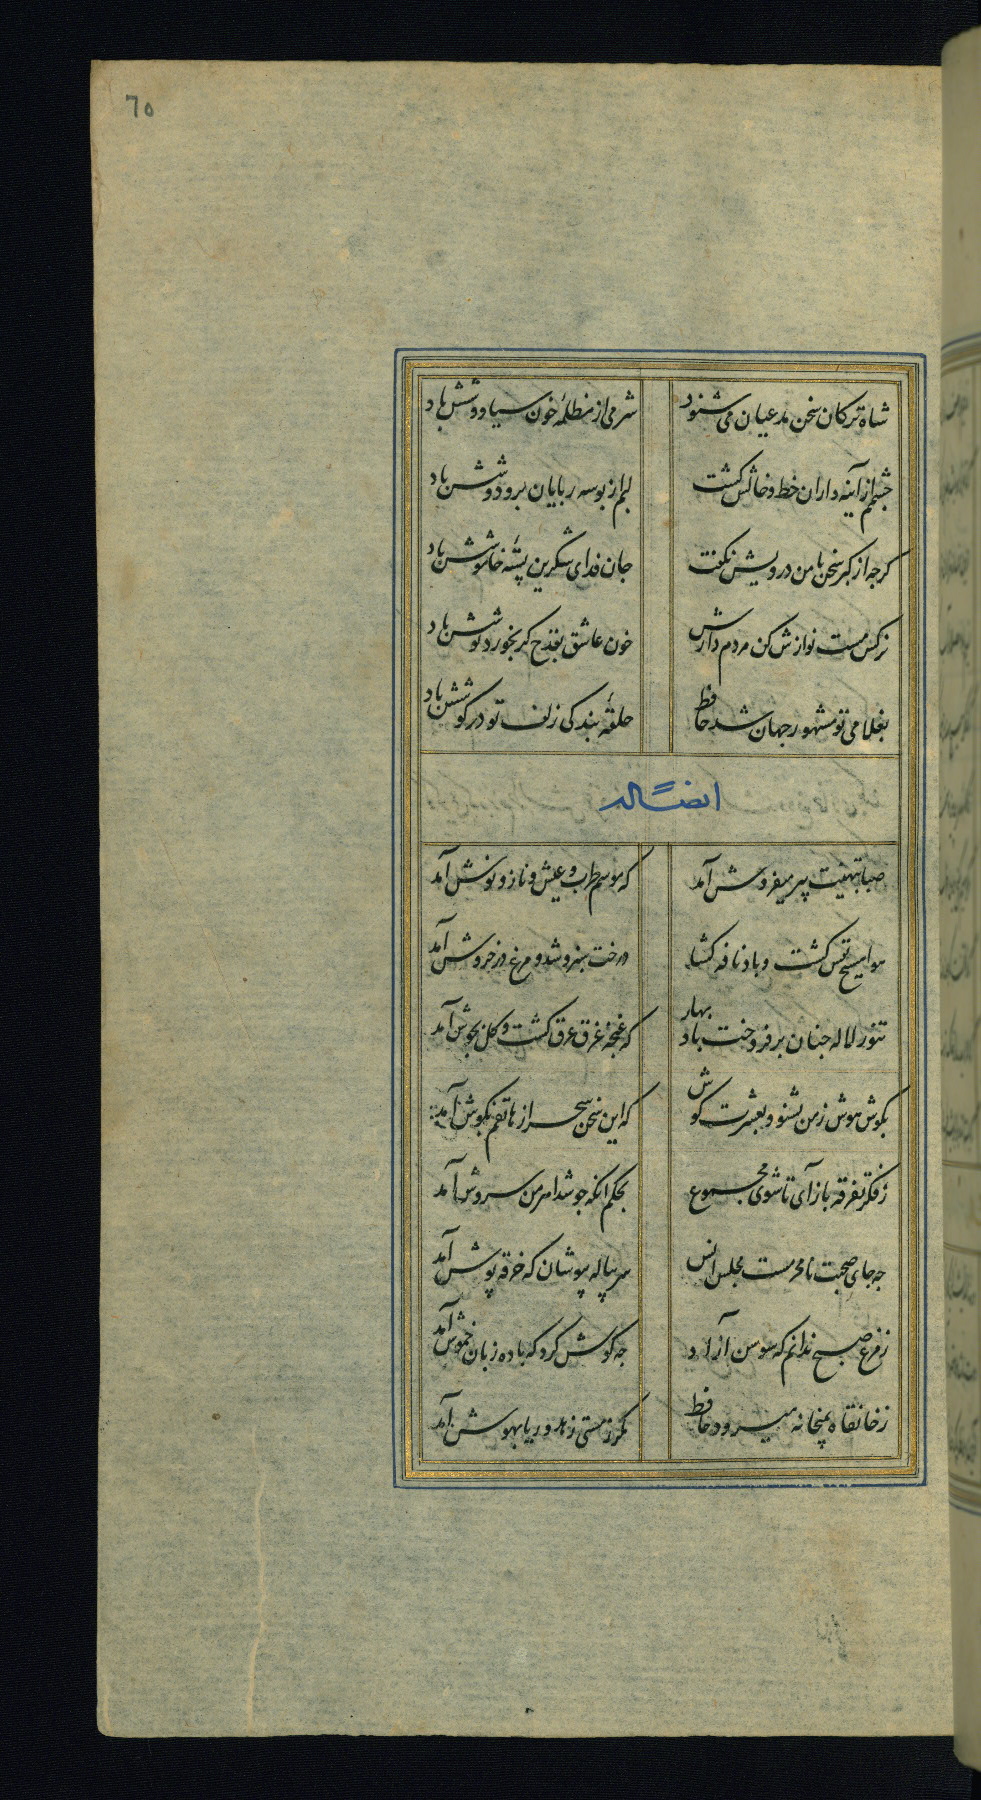 ٦٥
شاه ترکان سخن مدعیان می شنود شرمی از مظلمهٔ خون سیاووشش باد
چشمم از آینه داران خط و خالش کشت لبم از بوسه ربایان برو دوشش باد
کرچه از کبر سخن با من درویش نکفت جان فدای شکرین پستهٔ خاموشش باد
نرکس مست نوازش کن مردم دارش خون عاشق بقدح کر بخورد نوشش باد
بغلامی تو مشهور جهان شد حافظ حلقهٔ بندکی زلف تو در کوشش باد
ایضاً له
صبا بتهنیت پیر میفروش آمد که موسم طرب و عیش و ناز و نوش آمد
هوا مسیح نفس کشت و باد نافه کشا درخت سبز شد و مرغ در خروش آمد
تنور لاله چنان بر فروخت باد بهار که غنچه غرق عرق کشت و کل بجوش آمد
بکوش هوش ز من بشنو و بعشرت کوش که این سخن سحر از هاتفم بکوش آمد
ز فکر تفرقه باز آی تا شوی مجموع بحکم انکه چو شد اهرمن سروش آمد
چه جای صحبت نامحرمست مجلس انس سر پیاله بپوشان که خرقه پوش آمد
ز مرغ صبح ندانم که سوسن آزاد چه کوش کرد که با ده زبان خموش آمد
ز خانقاه بمیخانه میرود حافظ مکر ز مستی زهد و ریا بهوش آمد